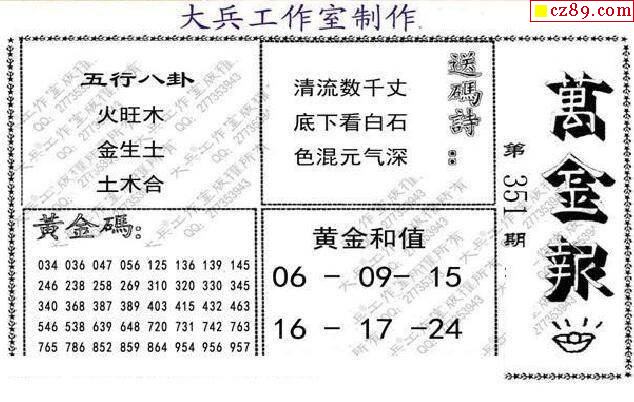 大兵工作室制作
cz89.com
五行八卦
火旺木
金生土
土木合
送碼詩：
清流数千丈
底下看白石
色混元气深
萬金報
第351期
黃金碼：
034 036 047 056 125 136 139 145
246 238 258 269 310 320 330 345
340 368 387 389 403 415 432 463
546 538 639 648 720 731 742 763
765 786 852 859 864 954 956 957
黄金和值
06 - 09- 15
16 - 17 -24
大兵工作室版权所有
QQ: 277353943